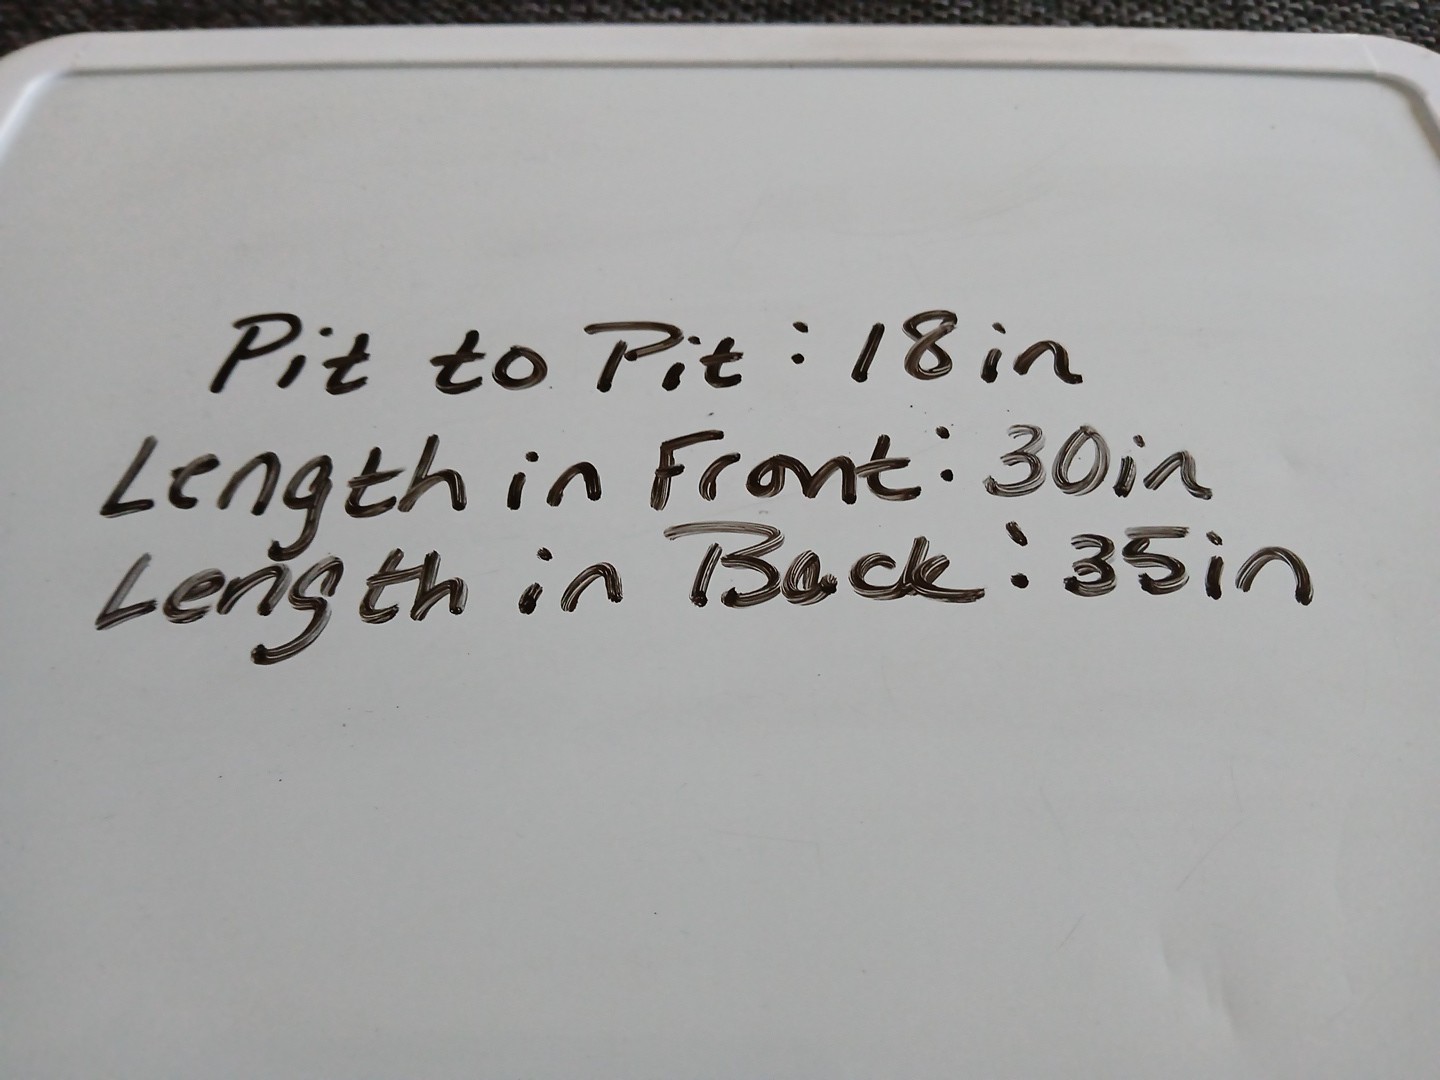 Pit to Pit: 18in
Length in Front: 30in
Length in Back: 35in